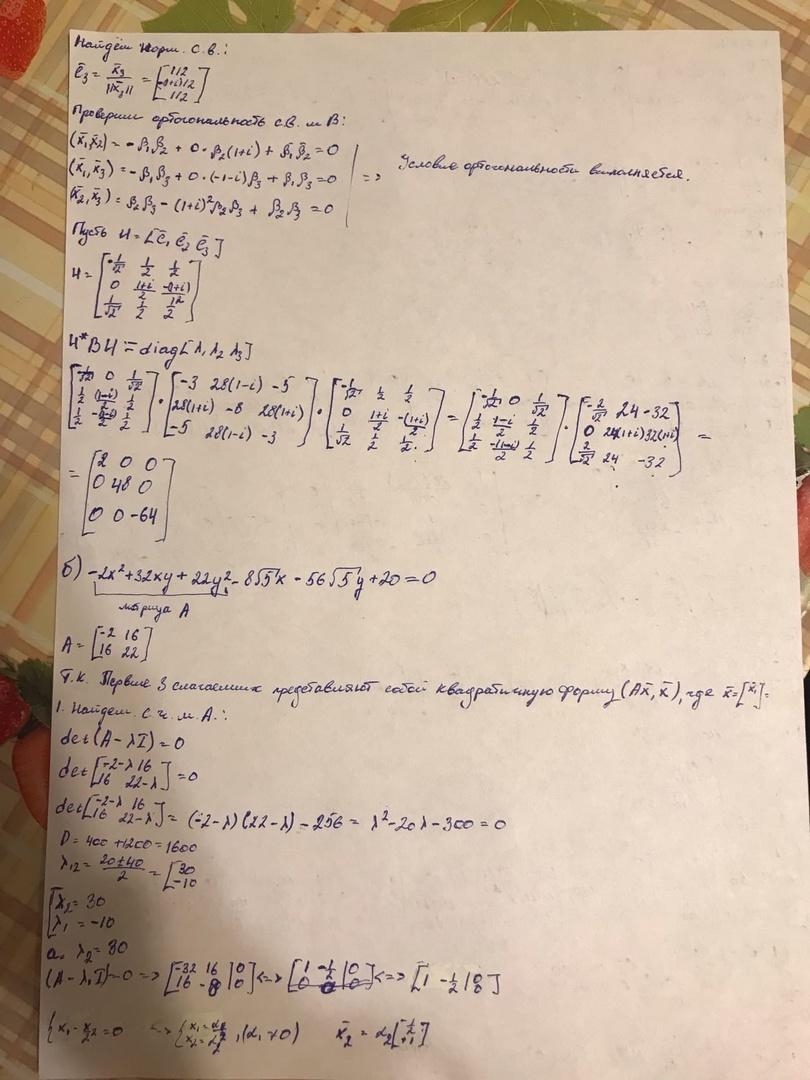 Найдём норм. с.в.:
ē₃ = x̄₃ / ||x̄₃|| = [1/2; -(1+i)/2; 1/2]
Проверим ортогональность с.в. м B:
(x̄₁,x̄₂) = -β₁β₂ + 0·β₂(1+i) + β₁β̄₂ = 0
(x̄₁,x̄₃) = -β₁β₃ + 0·(-1-i)β₃ + β₁β₃ = 0
(x̄₂,x̄₃) = β₂β₃ - (1+i)²β₂β₃ + β₂β₃ = 0
=> Условие ортогональности выполняется.
Пусть U = [ē₁ ē₂ ē₃]
U = [-1/√2 1/2 1/2; 0 (1+i)/2 -(1+i)/2; 1/√2 1/2 1/2]
U*BU = diag[λ₁ λ₂ λ₃]
[-1/√2 0 1/√2; 1/2 (1-i)/2 1/2; 1/2 -(1-i)/2 1/2] · [-3 28(1-i) -5; 28(1+i) -8 28(1+i); -5 28(1-i) -3] · [-1/√2 1/2 1/2; 0 (1+i)/2 -(1+i)/2; 1/√2 1/2 1/2] = [-1/√2 0 1/√2; 1/2 (1-i)/2 1/2; 1/2 -(1-i)/2 1/2] · [-2/√2 24 -32; 0 24(1+i) 32(1+i); 2/√2 24 -32] =
= [2 0 0; 0 48 0; 0 0 -64]
б) -2x² + 32xy + 22y² - 8√5x - 56√5y + 20 = 0
матрица A
A = [-2 16; 16 22]
Т.к. Первые 3 слагаемых представляют собой квадратичную форму (Ax̄, x̄), где x̄ =
1. Найдем с.ч. м. A.:
det(A - λI) = 0
det[-2-λ 16; 16 22-λ] = 0
det[-2-λ 16; 16 22-λ] = (-2-λ)(22-λ) - 256 = λ² - 20λ - 300 = 0
D = 400 + 1200 = 1600
λ₁₂ = (20±40)/2 = [30; -10
[λ₂ = 30
λ₁ = -10
a. λ₂ = 30
(A - λ₁I) = 0 => [-32 16 | 0; 16 -8 | 0] <=> [1 -1/2 | 0; 0 0 | 0] <=> [1 -1/2 | 0]
{x₁ - x₂/2 = 0